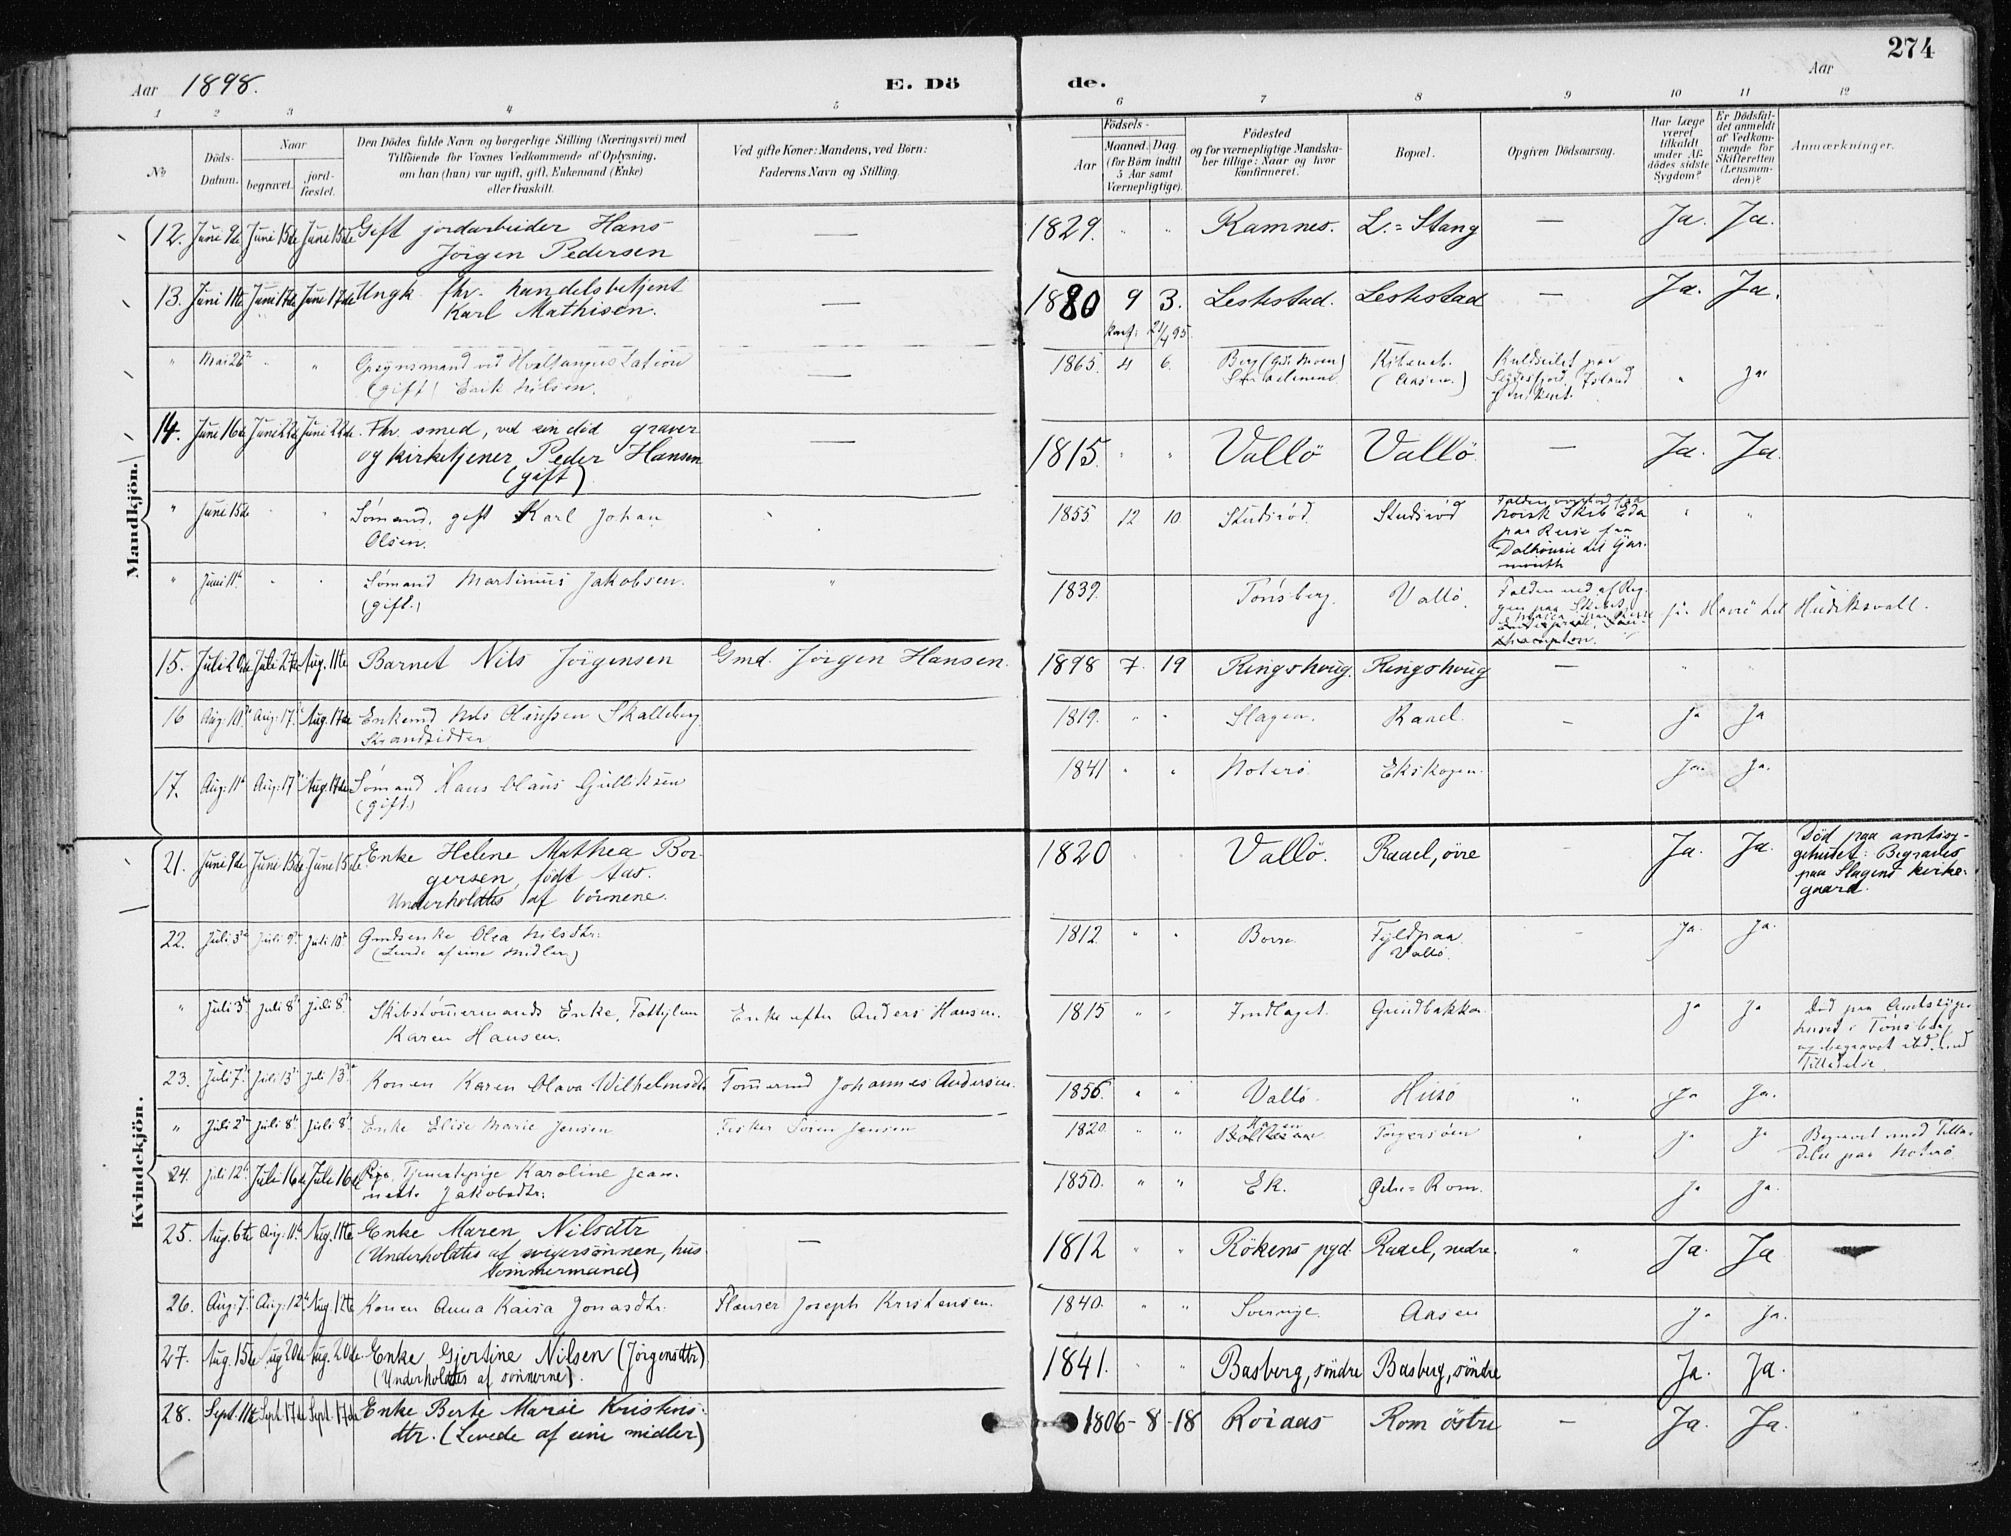 274
Aar 1898.
E. Dö de.
Aar
1 2 3 4 5 6 7 8 9 10 11 12
No
Döds-Datum.
Naar
begravet.
jord-fæstet.
Den Dödes fulde Navn og borgerlige Stilling (Næringsvei) med
Tilföiende for Voxnes Vedkommende af Oplysning,
om han (hun) var ugift, gift, Enkemand (Enke)
eller fraskilt.
Ved gifte Koner: Mandens, ved Börn:
Faderens Navn og Stilling.
Födsels-
Aar
Maaned. Dag.
(for Börn indtil
5 Aar samt
Værnepligtige).
Födested
og for værnepligtige Mandska-
ber tillige: Naar og hvor
konfirmeret.
Bopæl.
Opgiven Dödsaarsag.
Har Læge
været
tilkaldt
under Af-
dödes sidste
Sygdom?
Er Dödsfal-
det anmeldt
af Vedkom-
mende for
Skifteretten
(Lensman-
den)?
Anmærkninger.
Mandkjön.
12. Juni 9de Juni 15de Juni 15de Gift jordarbeider Hans — 1829. " " Ramnes. L.=Stang — Ja. Ja.
Jörgen Pedersen
13. Juni 11te Juni 17de Juni 17de Ungk. fhv. handelsbetjent — 1880 9 3. Leskestad. Leskestad — Ja. Ja.
Karl Mathisen.
Konf: 21/4 95.
" Mai 26 " " Opsynsmand ved Hvalfangerstation — 1865. 4 6. Berg
(gift) Erik Nilsen. (Aasen.) Seydesfjord, Island " Ja
14. Juni 16de Juni 22de Juni 22de Fhv. smed, ved sin död graver — 1815. " " Vallö Vallö. — Ja. Ja.
og kirketjener Peder Hansen
(gift)
" Juni 15de " " Sömand, gift Karl Johan " 1855 12 10 Studsröd. Studsröd " "
Olsen. norsk Skib Eda
paa Reise fra
Dalhousie til Yar-
mouth
" Juni 11te " " Sömand Martinius Jakobsen. " 1839. Tönsberg. Vallö. Falden ned af Rig-
(gift.) gen paa Skibet fra Havre til Hudiksvall.
15. Juli 20de Juli 27de Aug. 11te Barnet Nils Jörgensen Gmd. Jörgen Hansen. 1898 7. 19 Ringshoug. Ringshoug — " "
16 Aug: 10de Aug: 17de Aug. 17de Enkemd Nils Olaussen Skalleberg 1819. " " Slagen. Raael. — Ja Ja
Strandsidder
17. Aug: 11te Aug: 17de Aug. 17de Sömand Hans Olaus Gulliksen 1841 " " Nöterö. Ekskogen. Ja. Ja.
(gift.)
Kvindekjön.
21. Juni 9de Juni 15de Juni 15de Enke Helene Mathea Bor- 1820 " " Vallö. Raael, övre — Ja. Ja. Död paa amtssy-
gersen, födt Aas. gehuset: Begraves
Underholdtes af börnene. paa Slagens kirke-
gaard.
22. Juli 3de Juli 9de Juli 10de Gmdsenke Olea Nilsdtr: 1812. " " Borre. Fyldpaa — Ja. Ja.
(Levede af sine Midler) Vallö.
" Juli 3de Juli 8de Juli 8de Skibstömmermands Enke, Fattiglem Enke efter Anders Hansen. 1815 " " Indlaget. Grindbakken. Ja Ja Död paa Amtssyge-
Karen Hansen. huset i Tönsberg
og begravet ibd. med
Tilladelse.
23. Juli 7de Juli 13de Juli 13de Konen Karen Olava Wilhelmsdtr Tömermd Johannes Andersen. 1856. " " Vallö. Husö " Ja Ja.
" Juli 2de Juli 8de Juli 8de Enke Elise Marie Jensen Fisker Sören Jensen 1820. " " Torgersöen " Ja Ja Begravet med Tilla-
delse paa Nöterö
24. Juli 12te Juli 16de Juli 16de Pige, Tjenestepige Karoline Jean- 1850. " " Ek. Östre=Rom. Ja Ja.
nette Jakobsdtr.
25. Aug. 6te Aug. 11te Aug. 11te Enke Maren Nilsdtr — 1812 " " Rökens pgd. Raael, nedre. " Ja. Ja
(Underholdtes af svigersönnen, hus-
tömmermand)
26. Aug: 7de Aug: 12te Aug. 12te Konen Anna Kaisa Jonasdtr. Pladser Joseph Kristensen. 1840. " " Sverige. Aasen Ja Ja.
27. Aug. 15de Aug 20de Aug. 20de Enke Gjertine Nilsen (Jörgensdtr) 1841. " " Basberg, söndre Basberg, söndre Ja. Ja.
(Underholdtes af sönnerne).
28. Sept. 11te Sept. 17de Sept. 17de Enke Berte Marie Kristens- 1806 - 8 - 18 Roiaas Rom östre — Ja. Ja.
dtr. (Levede af sine midler)